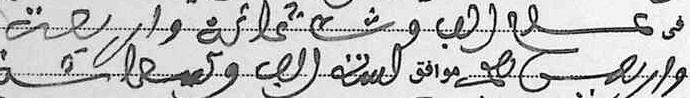 في عام الف وثلاثمائة واربعة
واربعين موافق لسنة الف وتسعمائة